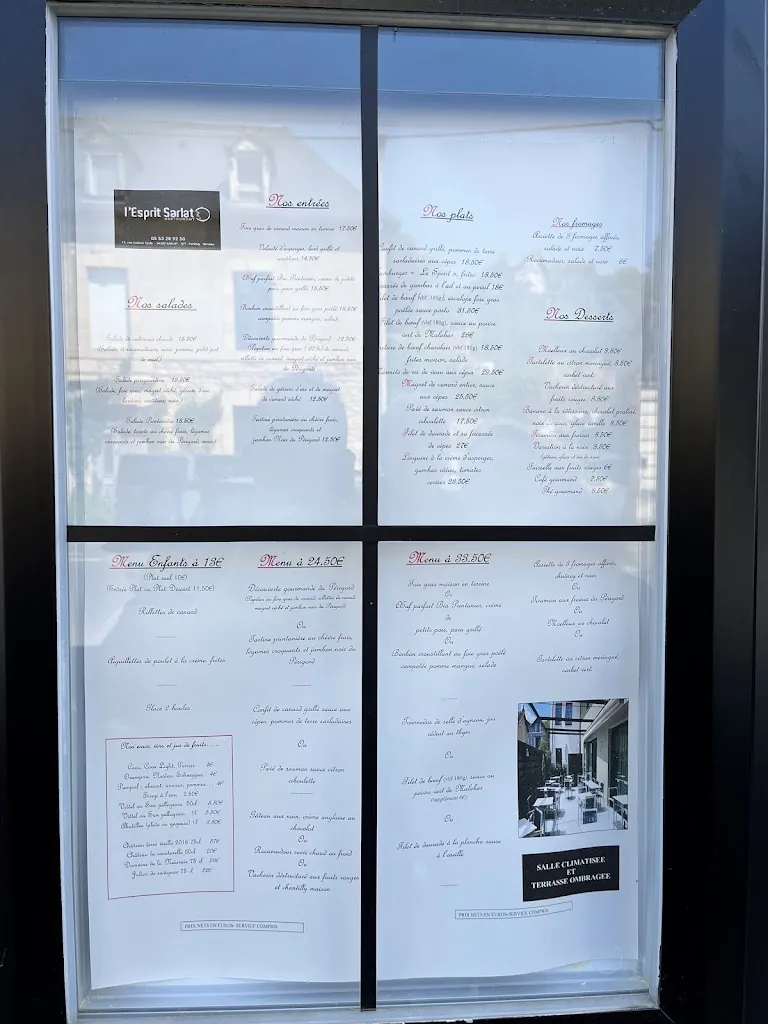 l'Esprit Sarlat
RESTAURANT
05 53 28 92 50
Nos entrées
Foie gras de canard maison en terrine 17.50€
Velouté d'asperges, lard grillé et
Œuf parfait Bio Printanier, crème de petits
pois, pain grillé
Bonbon croustillant au foie gras poêlé 18.50€
compotée pomme mangue, salade
Découverte gourmande du Périgord 12.50€
(Papiton au foie gras (20%) de canard,
rillette de canard, magret séché et jambon noir
du Périgord)
Salade de gésiers d'oie et de magret
de canard séché 12.50€
Tartine printanière au chèvre frais,
légumes croquants et
jambon Noir du Périgord 12.50€
Nos salades
Salade de cabécous chauds
Salade périgourdine
Salade Printanière 18.50€
(Salade, toasts au chèvre frais, légumes
croquants et jambon noir du Périgord, noix)
Nos plats
Confit de canard grillé, pommes de terre
sarladaises aux cèpes 18.50€
hamburger « Le Spirit », frites 18.50€
à l'ail et au persil 18€
filet de bœuf (vbf 180g), escalope foie gras
poêlée sauce porto 31.50€
Filet de bœuf (vbf 180g), sauce au poivre
vert de Malabar 26€
tartare de bœuf charolais (vbf 180g) 18.50€
frites maison, salade
de ris de veau aux cèpes 29.50€
Magret de canard entier, sauce
aux cèpes 25.50€
Pavé de saumon sauce citron
ciboulette 17.50€
Filet de daurade et sa fricassée
de cèpes 27€
Linguine à la crème d'asperges,
gambas rôties, tomates
cerises 23.50€
Nos fromages
Assiette de 3 fromages affinés,
salade et noix 7.50€
Rocamadour, salade et noix 6€
Nos Desserts
Moelleux au chocolat 8.50€
Tartelette au citron meringué, 8.50€
sorbet vert
Vacherin déstructuré aux
fruits rouges 8.50€
Banane à la rôtissoire, chocolat praliné,
noix de coco, glace vanille 8.50€
Tiramisu aux fraises 8.50€
Variation à la noix 8.50€
(gâteau, glace et vin de noix)
Faisselle aux fruits rouges 6€
Café gourmand 7.50€
Thé gourmand 8.50€
Menu Enfants à 13€
(Plat seul 10€)
(Entrée Plat ou Plat Dessert 11.50€)
Rillettes de canard
Aiguillettes de poulet à la crème, frites
Glace 2 boules
Nos eaux, vins et jus de fruits......
Coca, Coca Light, Perrier 4€
Orangina, Nestea, Schweppes 4€
Pampryl : abricot, ananas, pomme... 4€
Sirop à l'eau 2.50€
Vittel ou San pellegrino 50cl
Vittel ou San pellegrino 1l
Abatilles (plate ou gazeuse) 1l
Domaine de la Métairie 75 cl
Julien de savignac 75 cl
Menu à 24.50€
Découverte gourmande du Périgord
(Papiton au foie gras de canard, rillettes de canard,
magret séché et jambon noir du Périgord)
Ou
Tartine printanière au chèvre frais,
légumes croquants et jambon noir du
Périgord
Confit de canard grillé sauce aux
cèpes, pommes de terre sarladaises
Ou
Pavé de saumon sauce citron
ciboulette
Gâteau aux noix, crème anglaise au
chocolat
Ou
Rocamadour servi chaud ou froid
Ou
Vacherin déstructuré aux fruits rouges
et chantilly maison
PRIX NETS EN EUROS- SERVICE COMPRIS
Menu à 33.50€
Foie gras maison en terrine
Ou
Œuf parfait Bio Printanier, crème
de
petits pois, pain grillé
Ou
Bonbon croustillant au foie gras poêlé
compotée pomme mangue, salade
Tournedos de selle d'agneau, jus
réduit au thym
Ou
Filet de bœuf (vbf 180g) sauce au
poivre vert de Malabar
(supplément 6€)
Ou
Filet de daurade à la plancha sauce
à l'oseille
Assiette de 3 fromages affinés,
chutney et noix
Ou
Tiramisu aux fraises du Périgord
Ou
Moelleux au chocolat
Ou
Tartelette au citron meringué,
sorbet vert
SALLE CLIMATISEE
ET
TERRASSE OMBRAGEE
PRIX NETS EN EUROS-SERVICE COMPRIS